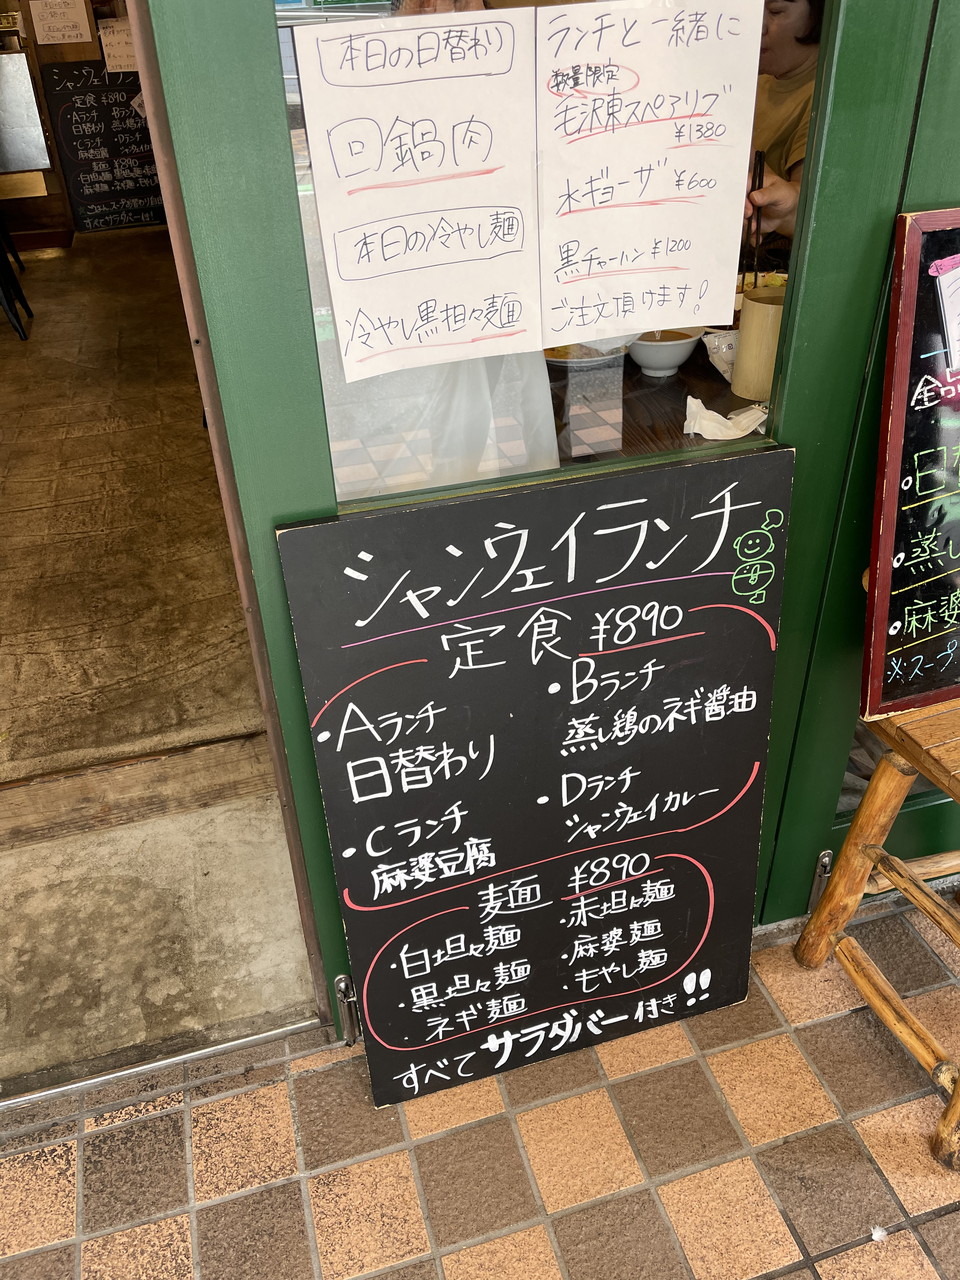 本日の日替わり
回鍋肉
本日の冷やし麺
冷やし黒担々麺
ランチと一緒に
数量限定
毛沢東スペアリブ
¥1380
水ギョーザ ¥600
黒チャーハン ¥1200
ご注文頂けます!
シャンウェイランチ
定食 ¥890
・Aランチ
日替わり
・Bランチ
蒸し鶏のネギ醤油
・Cランチ
麻婆豆腐
・Dランチ
シャンウェイカレー
麦面 ¥890
・白坦々麺
・黒坦々麺
・ネギ麺
・赤坦々麺
・麻婆麺
・もやし麺
すべてサラダバー付き!!
シャンウェイラン
定食 ¥890
・Aランチ
日替わり
Bランチ
・Cランチ
麻婆豆腐
・Dランチ
¥890
すべてサラダバー付き!
蒸し
麻婆
※スープ